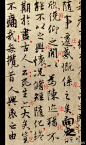 隨事遷感慨係之矣向之
欣俛仰之閒以為陳迹猶不
能不以之興懷況脩短隨化終
期於盡古人云死生亦大矣豈
不痛哉每攬昔人興感之由